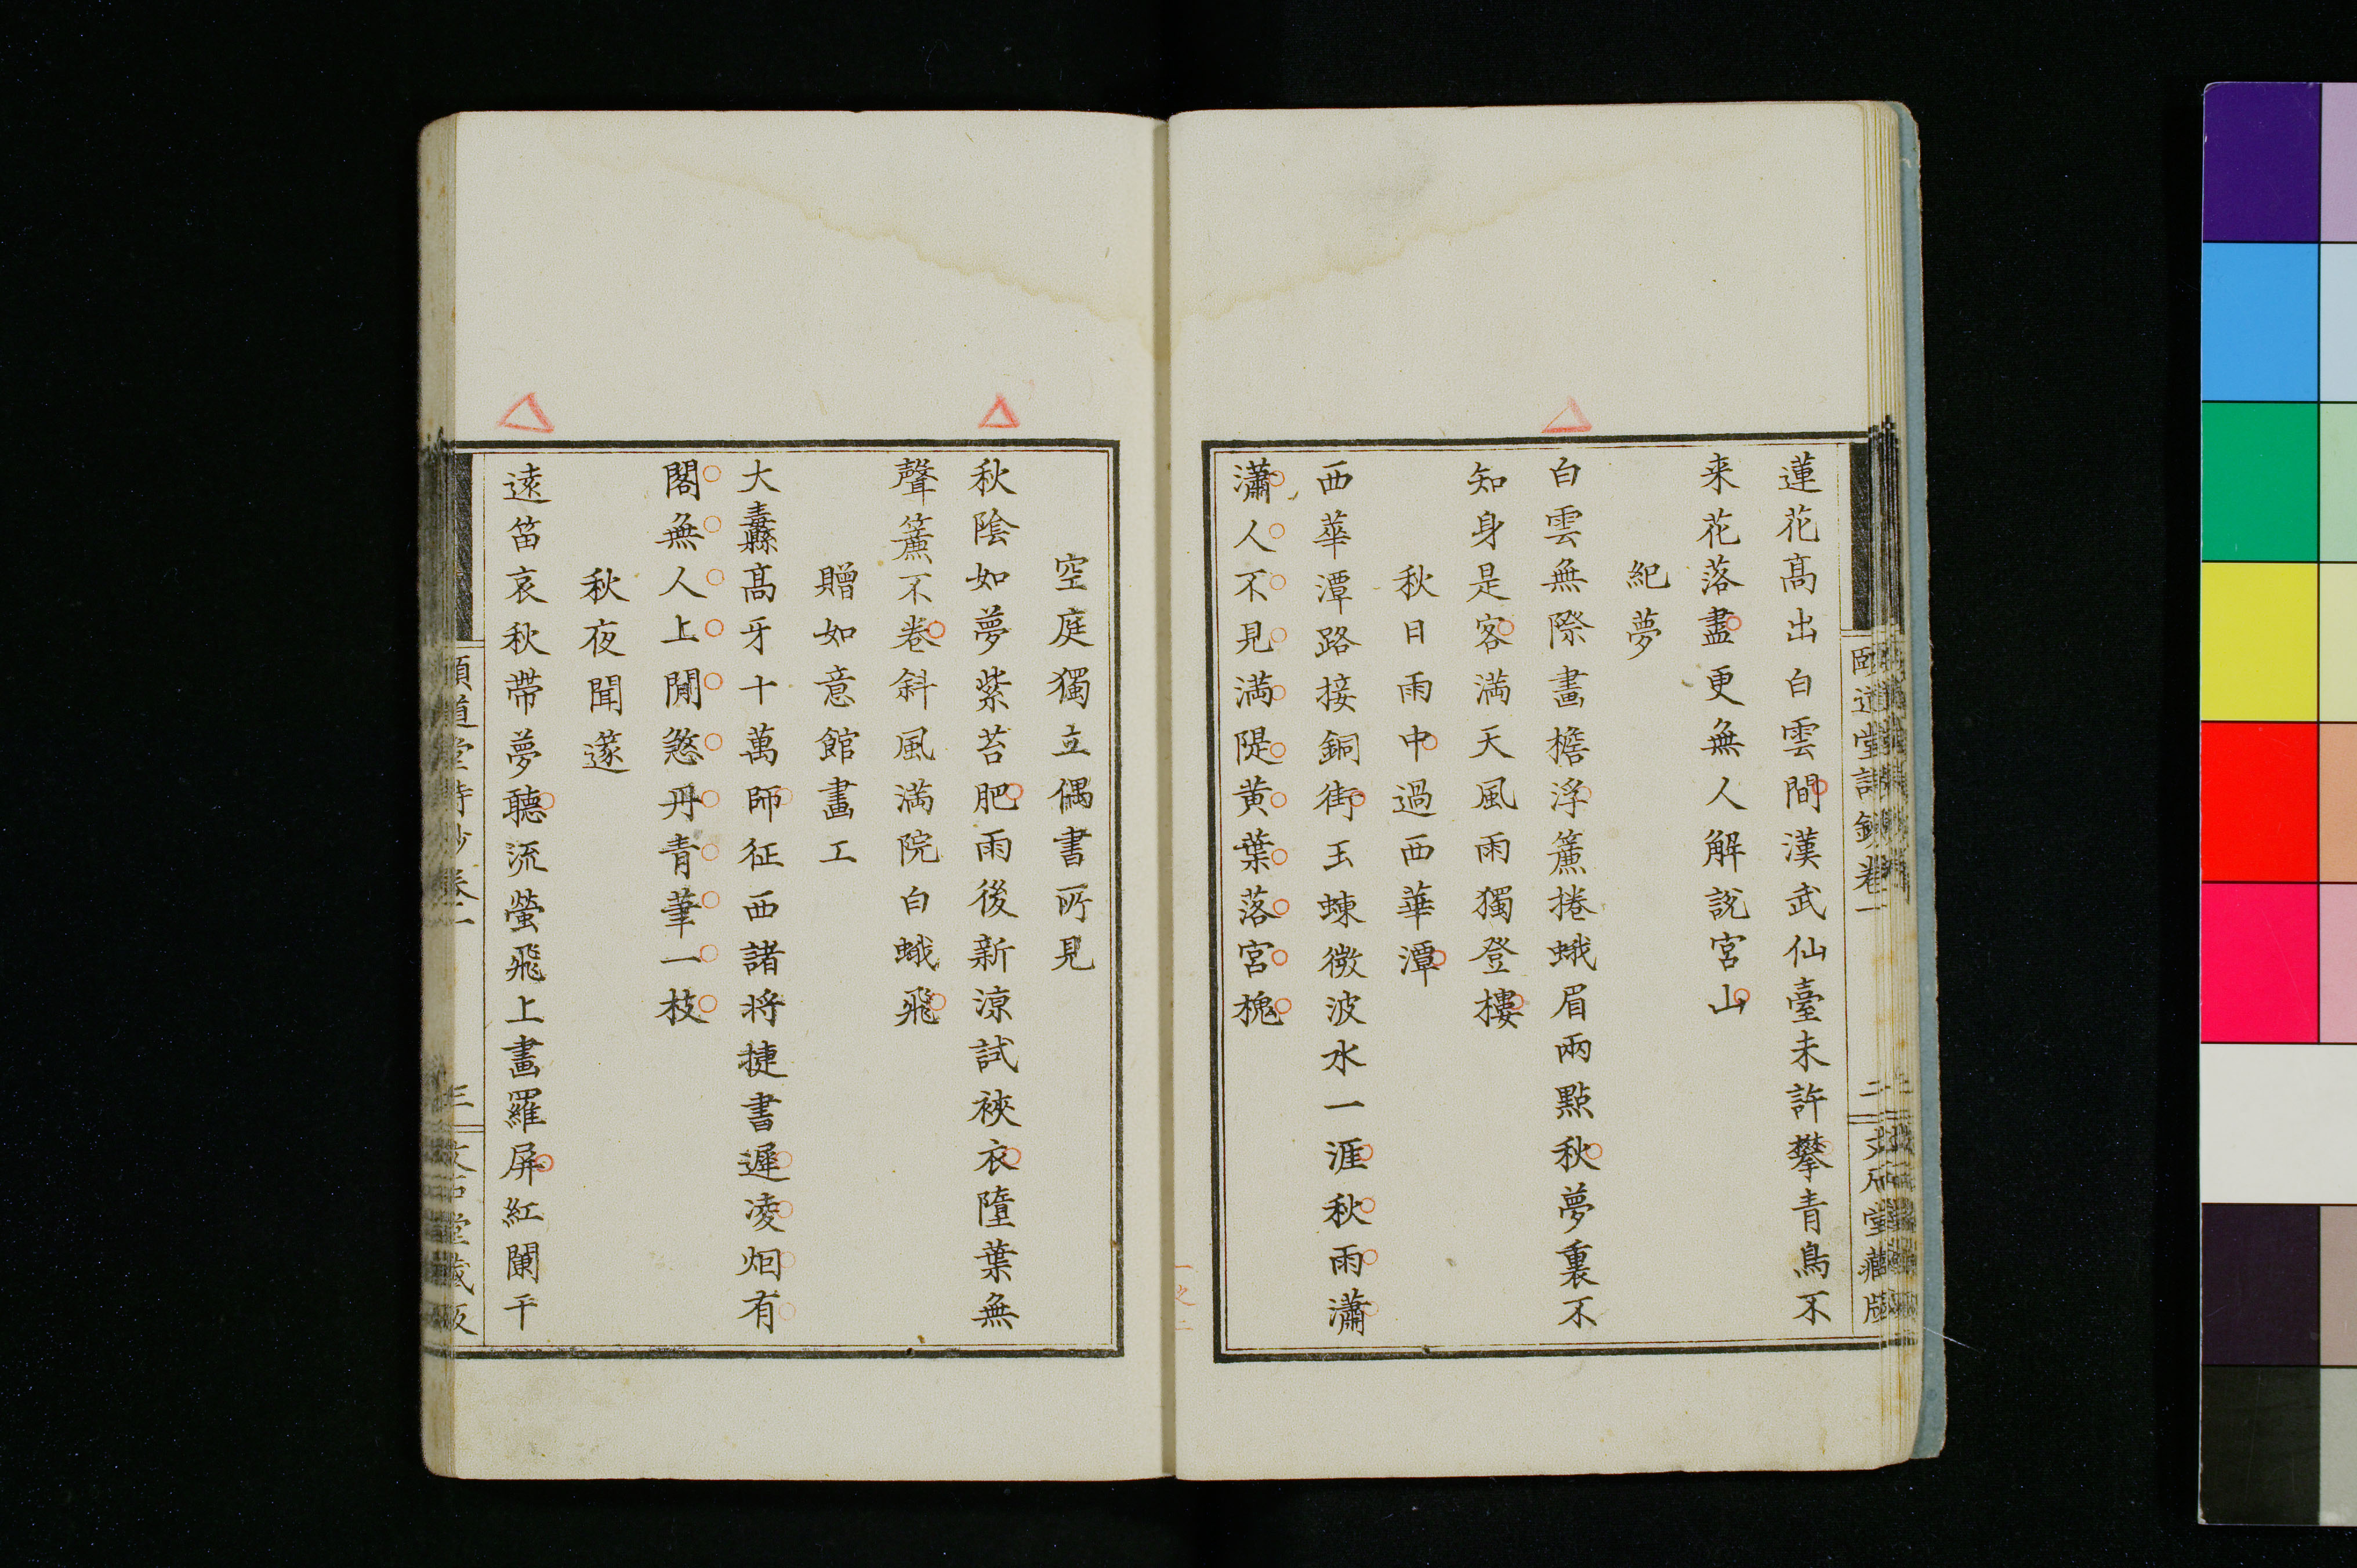 蓮花髙出白雲間漢武仙臺未許攀青鳥不
来花落盡更無人解說宮山
紀夢
白雲無際畫檐浮簾捲蛾眉兩點秋夢裏不
知身是客滿天風雨獨登樓
秋日雨中過西華潭
西華潭路接銅街玉蝀微波水一涯秋雨瀟
瀟人不見滿隄黃葉落宮槐
空庭獨立偶書所見
秋陰如夢紫苔肥雨後新涼試裌衣墮葉無
聲簾不卷斜風滿院白蛾飛
贈如意館畫工
大纛髙牙十萬師征西諸将捷書遲凌烟有
閣無人上閒煞丹青筆一枝
秋夜聞篴
遠笛哀秋帶夢聽流螢飛上畫羅屏紅闌干
頤道堂詩鈔卷一
三